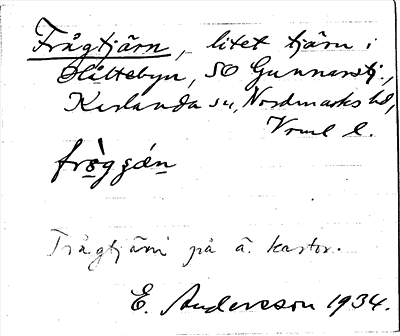 Frågtjärn, litet tjärn i
Håttebyn, SO Gunnarstj.,
Karlanda sn, Nordmarks hd,
Vrml l.
fròggǽn
Trågtjärn på ä. kartor.
E. Andersson 1934.